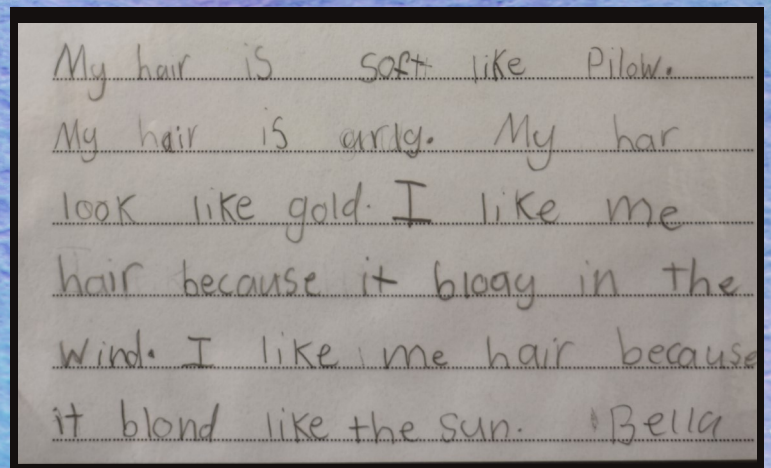 My hair is soft like Pilow.
My hair is curly. My har
look like gold. I like me
hair because it bloay in the
wind. I like me hair because
it blond like the sun. Bella